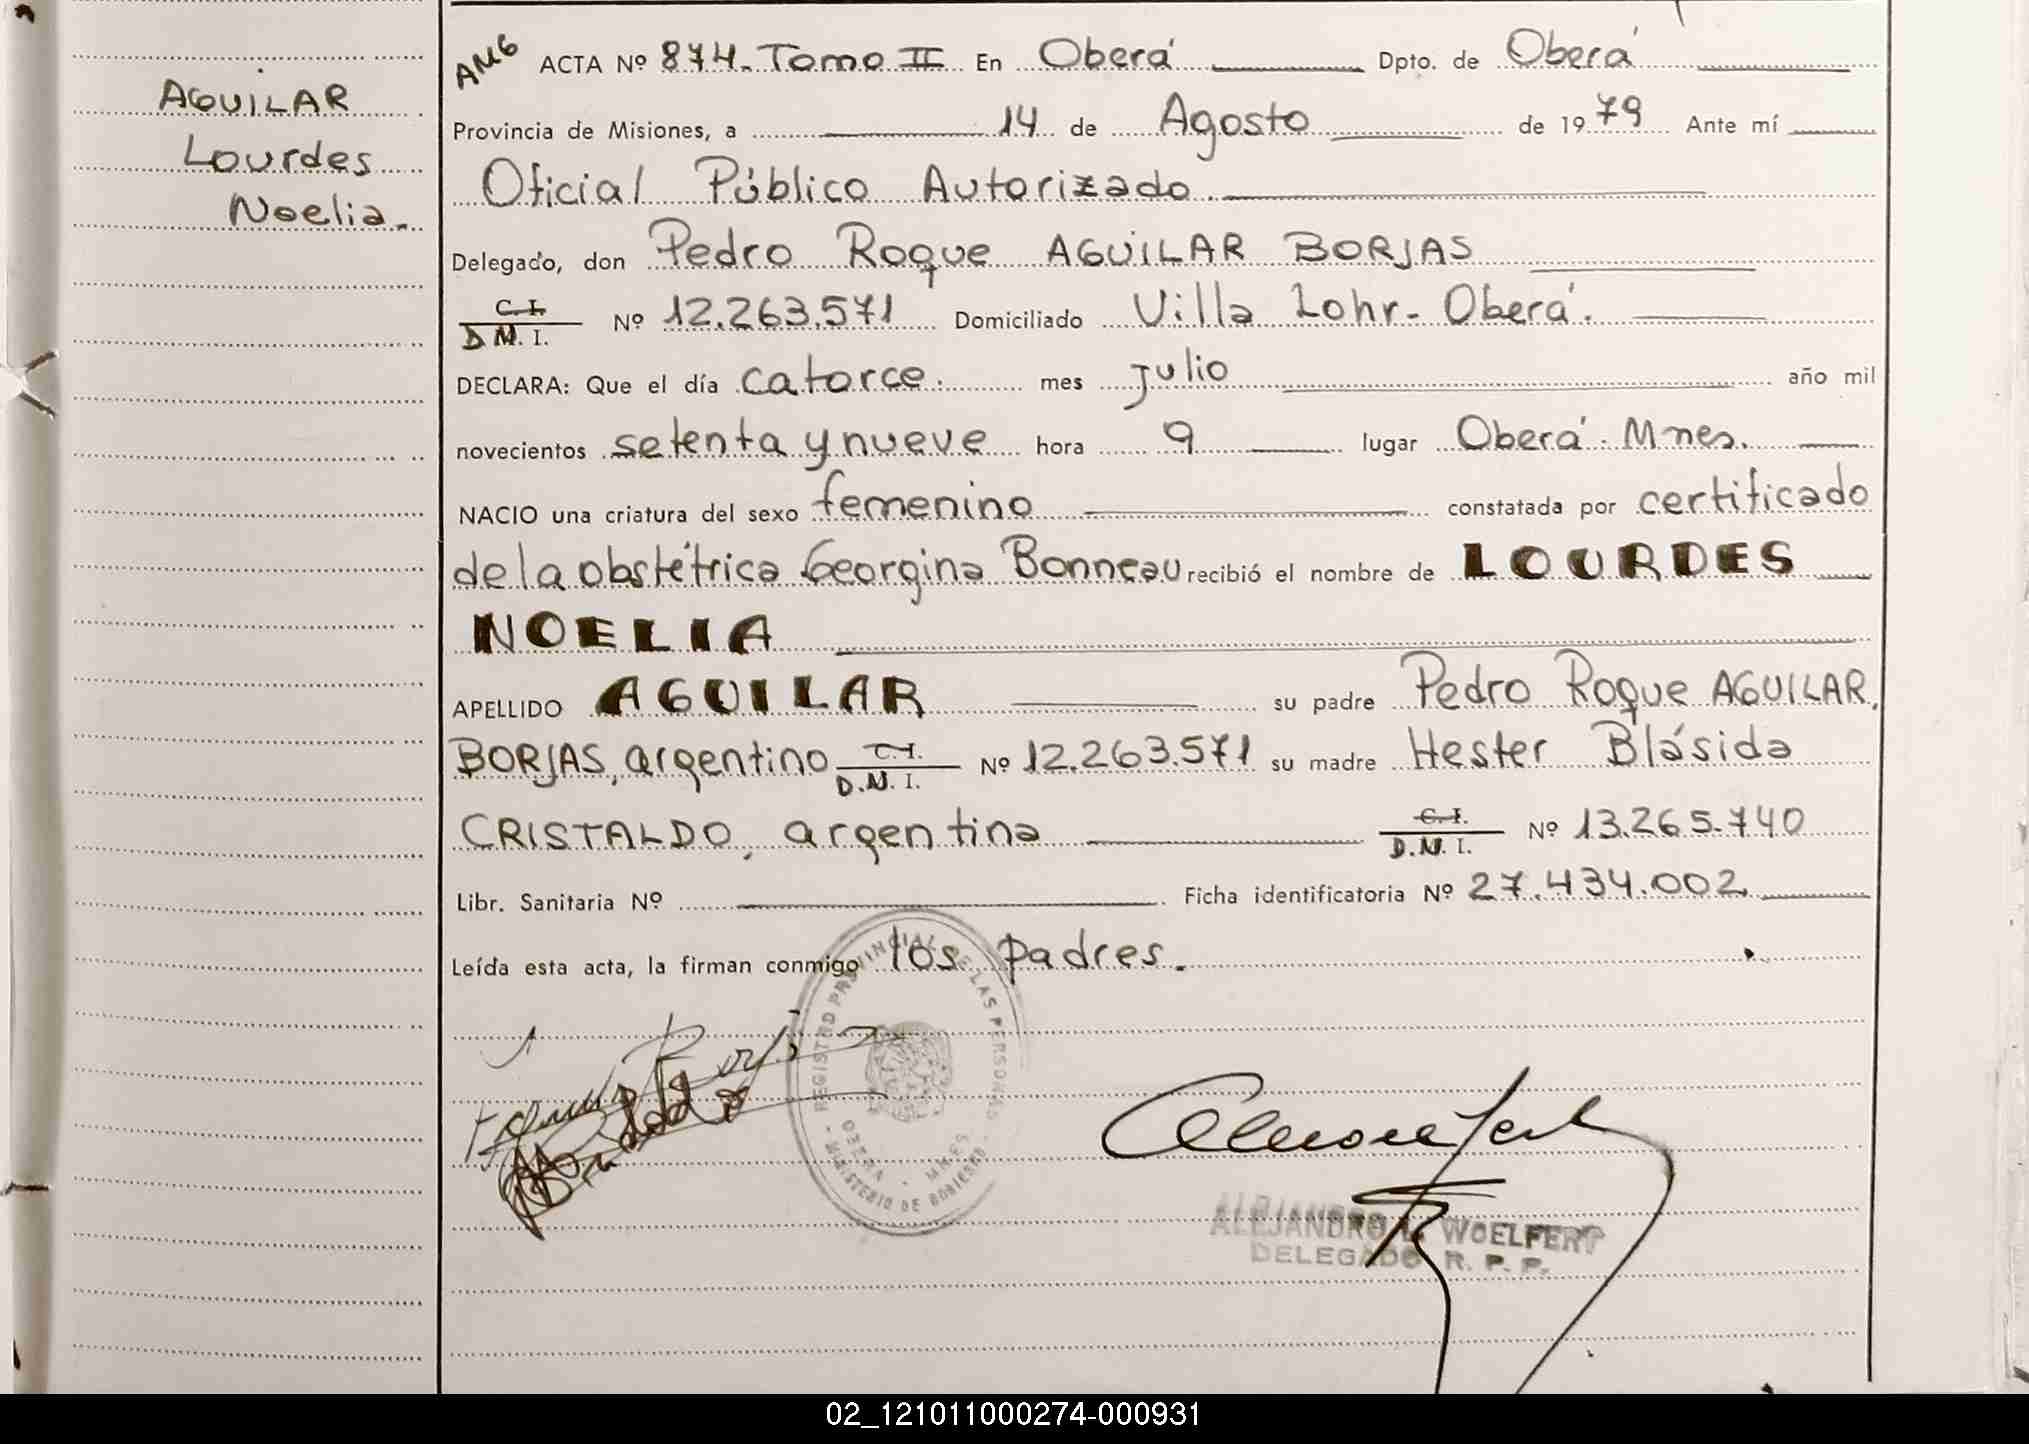 AGUILAR
Lourdes
Noelia.
AMG ACTA Nº 874. Tomo II En Oberá Dpto. de Oberá
Provincia de Misiones, a 14 de Agosto de 1979 Ante mí
Oficial Público Autorizado.
Delegado, don Pedro Roque AGUILAR BORJAS
C.I. D.N.I. Nº 12.263.571 Domiciliado Villa Lohr - Oberá.
DECLARA: Que el día catorce. mes julio año mil
novecientos setenta y nueve hora 9 lugar Oberá. Mnes.
NACIO una criatura del sexo femenino constatada por certificado
de la obstétrica Georgina Bonneau recibió el nombre de LOURDES
NOELIA
APELLIDO AGUILAR su padre Pedro Roque AGUILAR
BORJAS, argentino C.I. D.N.I. Nº 12.263.571 su madre Hester Blásida
CRISTALDO, argentina C.I. D.N.I. Nº 13.265.740
Libr. Sanitaria Nº Ficha identificatoria Nº 27.434.002
Leída esta acta, la firman conmigo los padres.
REGISTRO PROVINCIAL DE LAS PERSONAS
OBERA - MNES
MINISTERIO DE GOBIERNO
ALEJANDRO L. WOELFERT
DELEGADO R. P. P.
02_121011000274-000931